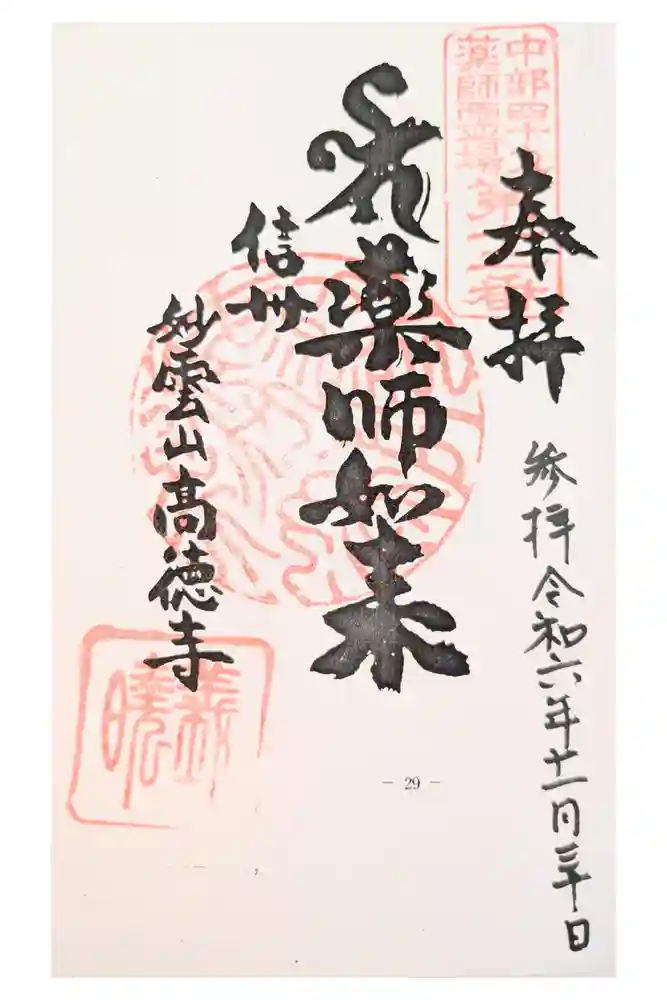 奉拝
参拝令和六年十一月三十日
薬師如来
信州
妙雲山高徳寺
中部四十九
薬師霊場第
- 29 -